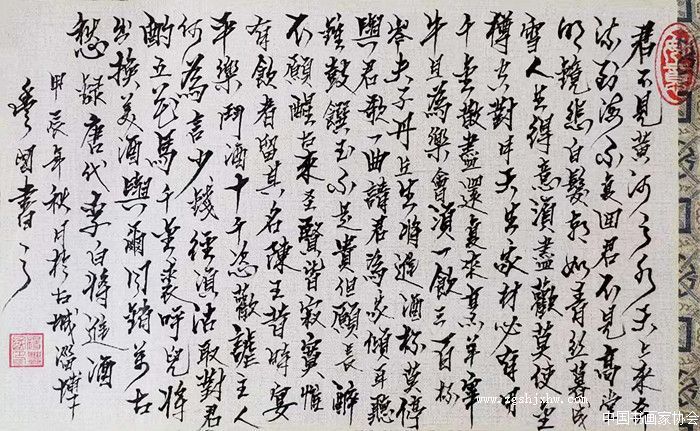 君不見黃河之水天上來奔
流到海不復回君不見高堂
明鏡悲白髮朝如青絲暮成
雪人生得意須盡歡莫使金
樽空對月天生我材必有用
千金散盡還復來烹羊宰
牛且為樂會須一飲三百杯
岑夫子丹丘生將進酒杯莫停
與君歌一曲請君為我傾耳聽
鐘鼓饌玉不足貴但願長醉
不願醒古來聖賢皆寂寞惟
有飲者留其名陳王昔時宴
平樂鬥酒十千恣歡謔主人
何為言少錢徑須沽取對君
酌五花馬千金裘呼兒將
出換美酒與爾同銷萬古
愁錄唐代李白將進酒
甲辰年秋月於古城淄博
國書
www.zgshjxhw.com
中国书画家协会